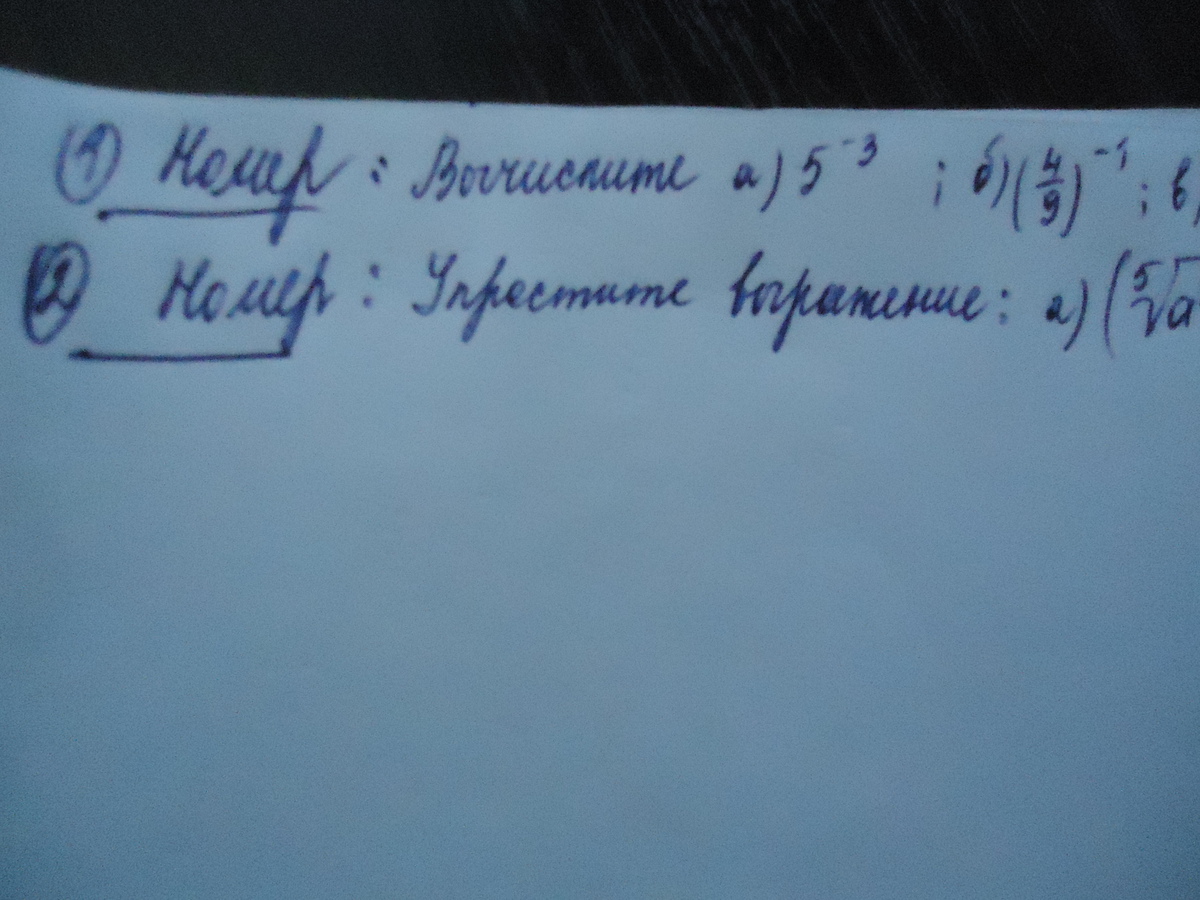 ① Номер : Вычислите а) 5⁻³ ; б) (4/9)⁻¹ ; в)
② Номер : Упростите выражение: а) (⁵√а